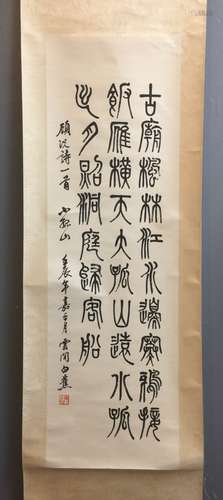 古廟楓林江水邊寒鴉接
飯雁橫天大孤山遠小孤
出月照洞庭歸客船
顧況詩一首 小孤山 壬辰年嘉平月 雲間白蕉